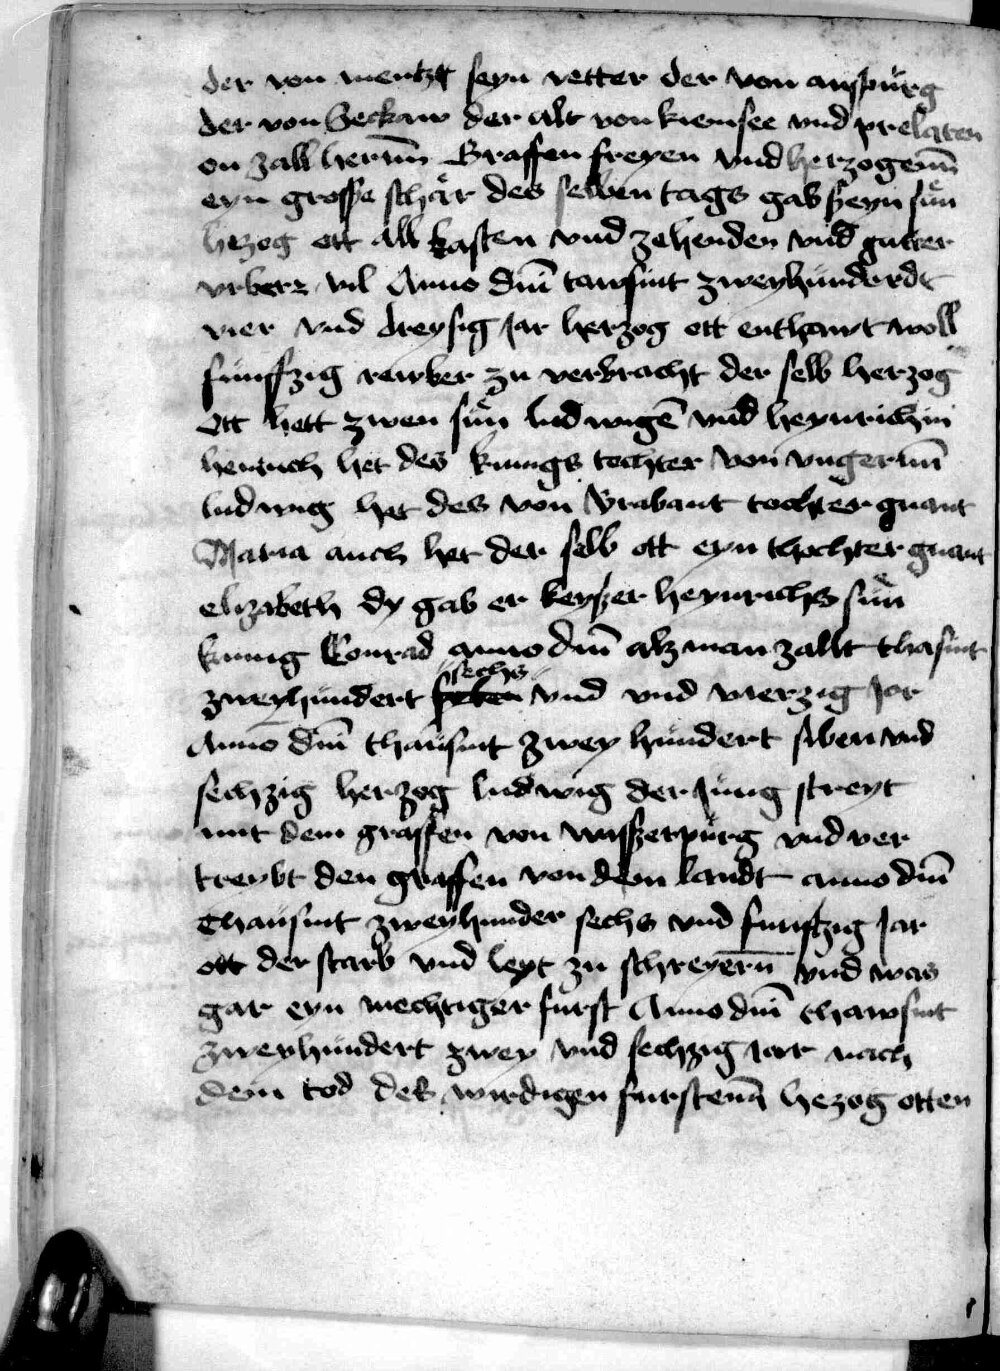 der von mentzt seyn vetter der von auspürg
der von Seckaw der alt von kiemsee vnd prelaten
on zall herrnn Graffen freyen vnd herzogenn
eyn grosse schär des selben tags gab seyn sün
hezog ott all kasten vnd zehenden vnd gutter
vrberz vil Anno dnī tawsint zweyhünderdt
vier vnd dreysig Jar herzog ott enthawt woll
fünffzig rawber zu verbracht der selb herzog
Ott hett zwen sün ludwigē vnd heynrichin
heinrich het des kunigs tochter von vngernn
ludwig het des von Brabant tochter gnant
Maria auch het der selb ott eyn thochter gnant
elizabeth dy gab er keyser heynrichs sün
kunig Konrad anno dnī alz man zallt thasint
zweyhundert sechs vnd vnd vierzig Jar
Anno dnī thausint zwey hundert siben vnd
sechzig herzog ludwig der Jung streyt
mit dem graffen von wasserpürg vnd ver
treybt den graffen von dem landt anno dnī
Thausint zweyhunder sechs vnd funftzig Jar
ott der starb vnd leyt zu schreyernn vnd was
gar eyn mechtiger furst Anno dnī thawsint
zweyhundert zwey vnd sechzig Jar nach
dem tod des wirdigen furstenn hezog otten